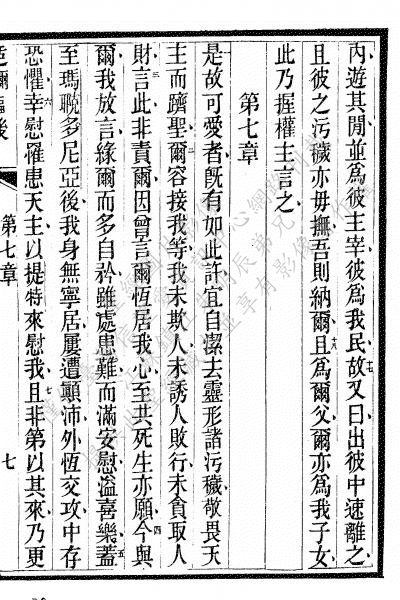 內遊其閒並爲彼主宰彼爲我民故又曰出彼中速離之
且彼之污穢亦毋撫吾則納爾且爲爾父爾亦爲我子女
此乃握權主言之
第七章
是故可愛者旣有如此許宜自潔去靈形諸污穢敬畏天
主而躋聖爾容接我等我未欺人未誘人敗行未貪取人
財言此非責爾因曾言爾恆居我心至共死生亦願今與
爾我放言緣爾而多自矜雖處患難而滿安慰溢喜樂蓋
至瑪䁂多尼亞後我身無寧居屢遭顚沛外恆交攻中存
恐懼幸慰罹患天主以提特來慰我且非第以其來乃更
第七章
七